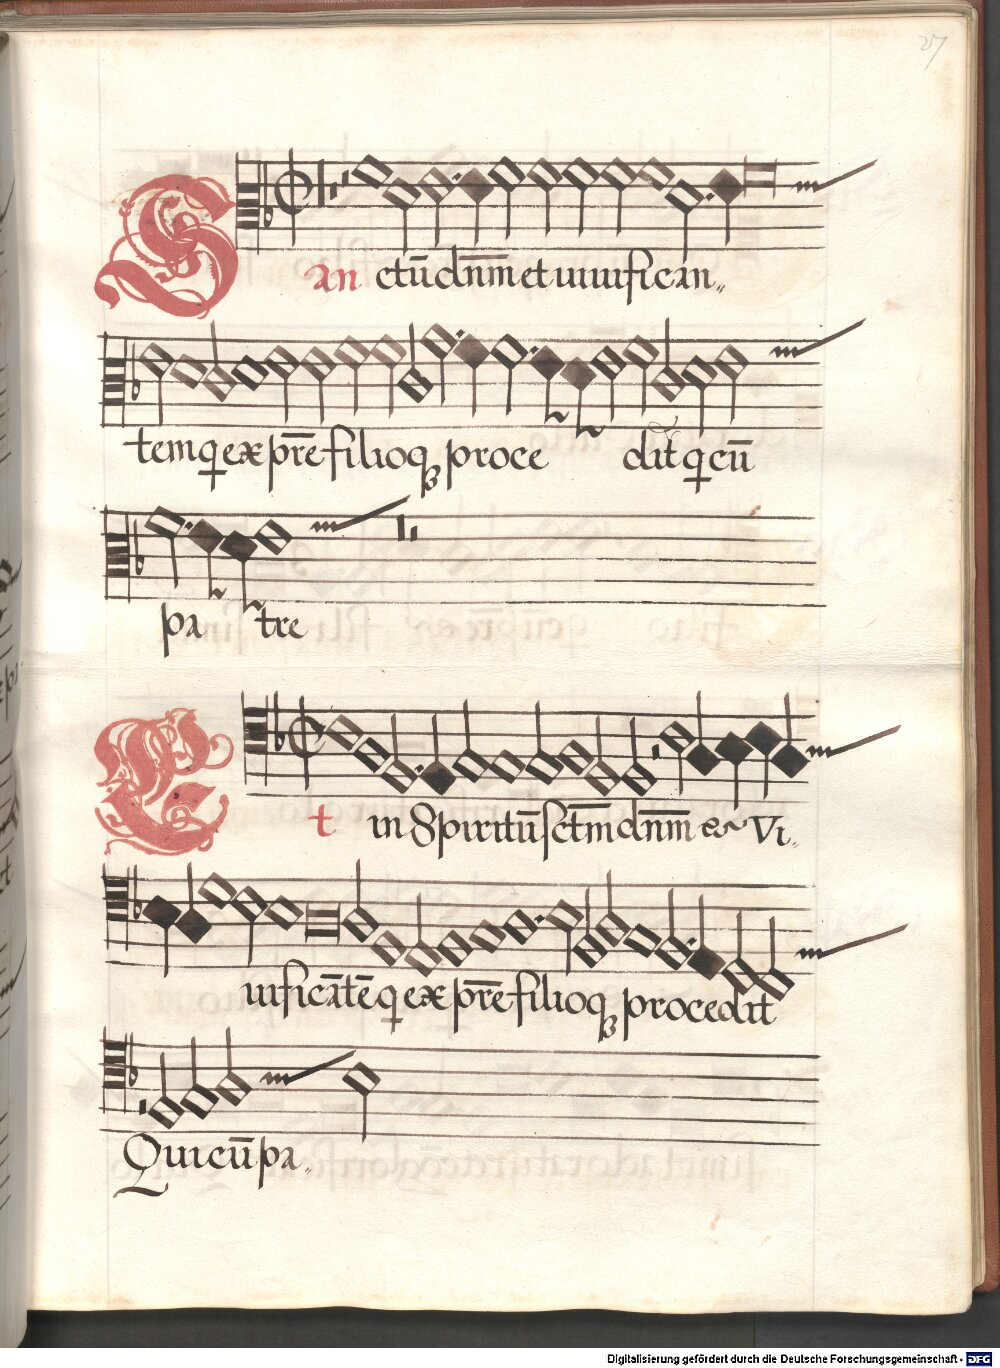 27
San ctū dn̄m et uiuifican„
tem q̨ ex pr̄e filioqꝫ proce dit q̨ cū
pa tre
Et in Spiritū sctm̄ dn̄m et Vi„
uificātē q̨ ex pr̄e filioqꝫ procedit
Qui cū pa„
Digitalisierung gefördert durch die Deutsche Forschungsgemeinschaft - DFG